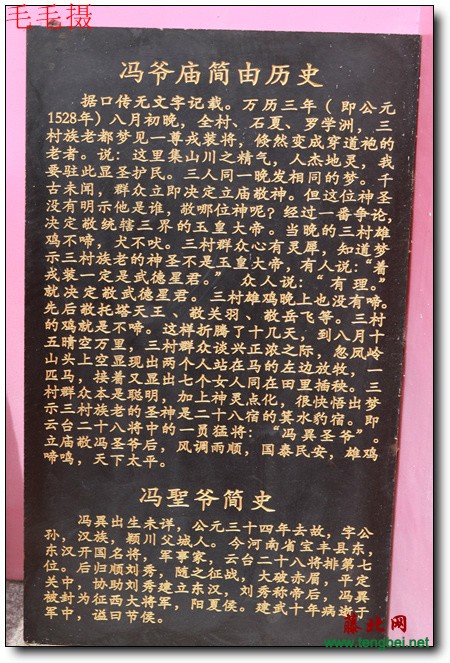 毛毛摄
冯爷庙简由历史
据口传无文字记载。万历三年(即公元
1528年)八月初晚,全村、石夏、罗学洲,三
村族老都梦见一尊戎装将,倏然变成穿道袍的
老者。说:这里集山川之精气,人杰地灵,我
要驻此显圣护民。三人同一晚发相同的梦。千
古未闻,群众立即决定立庙敬神。但这位神圣
没有明示他是谁,敬哪位神呢?经过一番争论,
决定敬统辖三界的玉皇大帝。当晚的三村雄
鸡不啼,犬不吠。三村群众心有灵犀,知道梦
示三村族老的神圣不是玉皇大帝,有人说:“着
戎装一定是武德星君。” 众人说:“有理。”
就决定敬武德星君。三村雄鸡晚上也没有啼。
先后敬托塔天王、敬关羽、敬岳飞等。三村
的鸡就是不啼。这样折腾了十几天,到八月十
五晴空万里,三村群众谈兴正浓之际,忽凤岭
山头上空显现出两个人站在马的左边放牧,一
匹马,接着又显出七个女人同在田里插秧。三
村群众本是聪明,加上神灵点化,很快悟出梦
示三村族老的圣神是二十八宿的箕水豹宿。即
云台二十八将中的一员猛将:“冯異圣爷”。
立庙敬冯圣爷后,风调雨顺,国泰民安,雄鸡
啼鸣,天下太平。
冯聖爷简史
冯異出生未详,公元三十四年去故,字公
孙,汉族,颖川父城人。今河南省宝丰县东,
东汉开国名将,军事家,云台二十八将排第七
位。后归顺刘秀,随之征战,大破赤眉,平定
关中,协助刘秀建立东汉,刘秀称帝后,冯異
被封为征西大将军,阳夏侯。建武十年病逝于
军中,谥曰节侯。
藤北网
www.tengbei.net